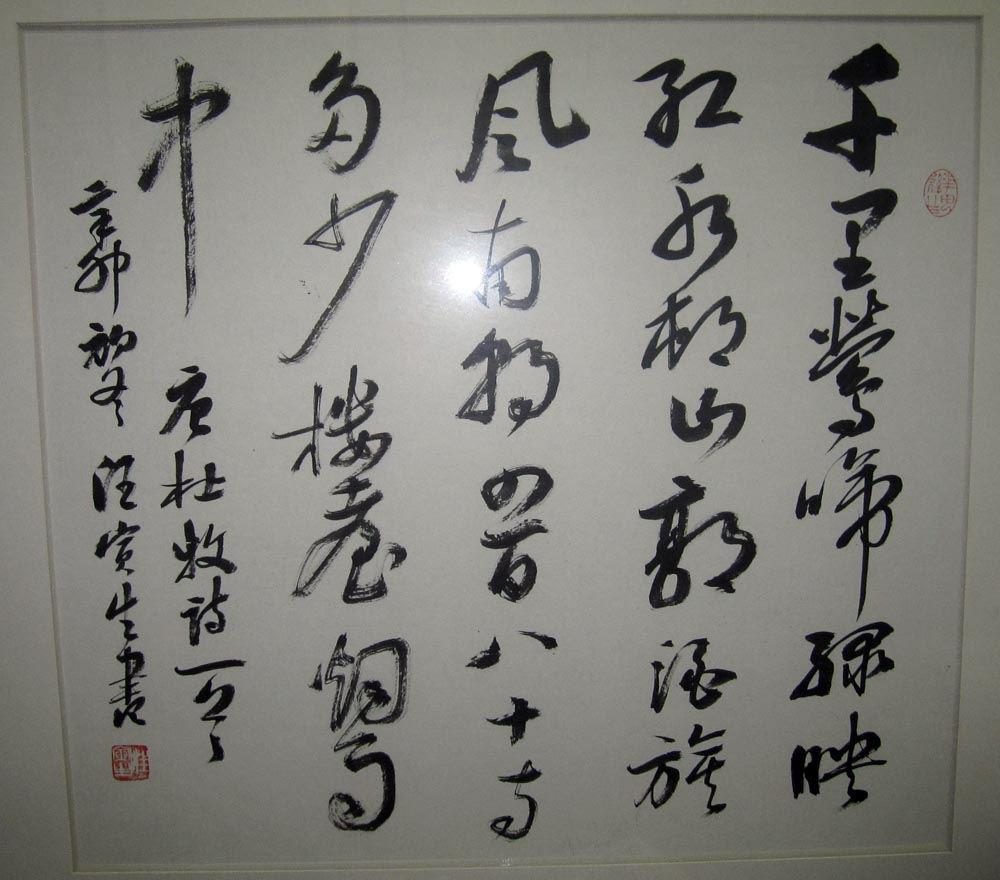 千里鶯啼綠映
紅水村山郭酒旗
風南朝四百八十寺
多少樓臺烟雨
中 唐杜牧詩一首
辛卯初冬 汪寅生書